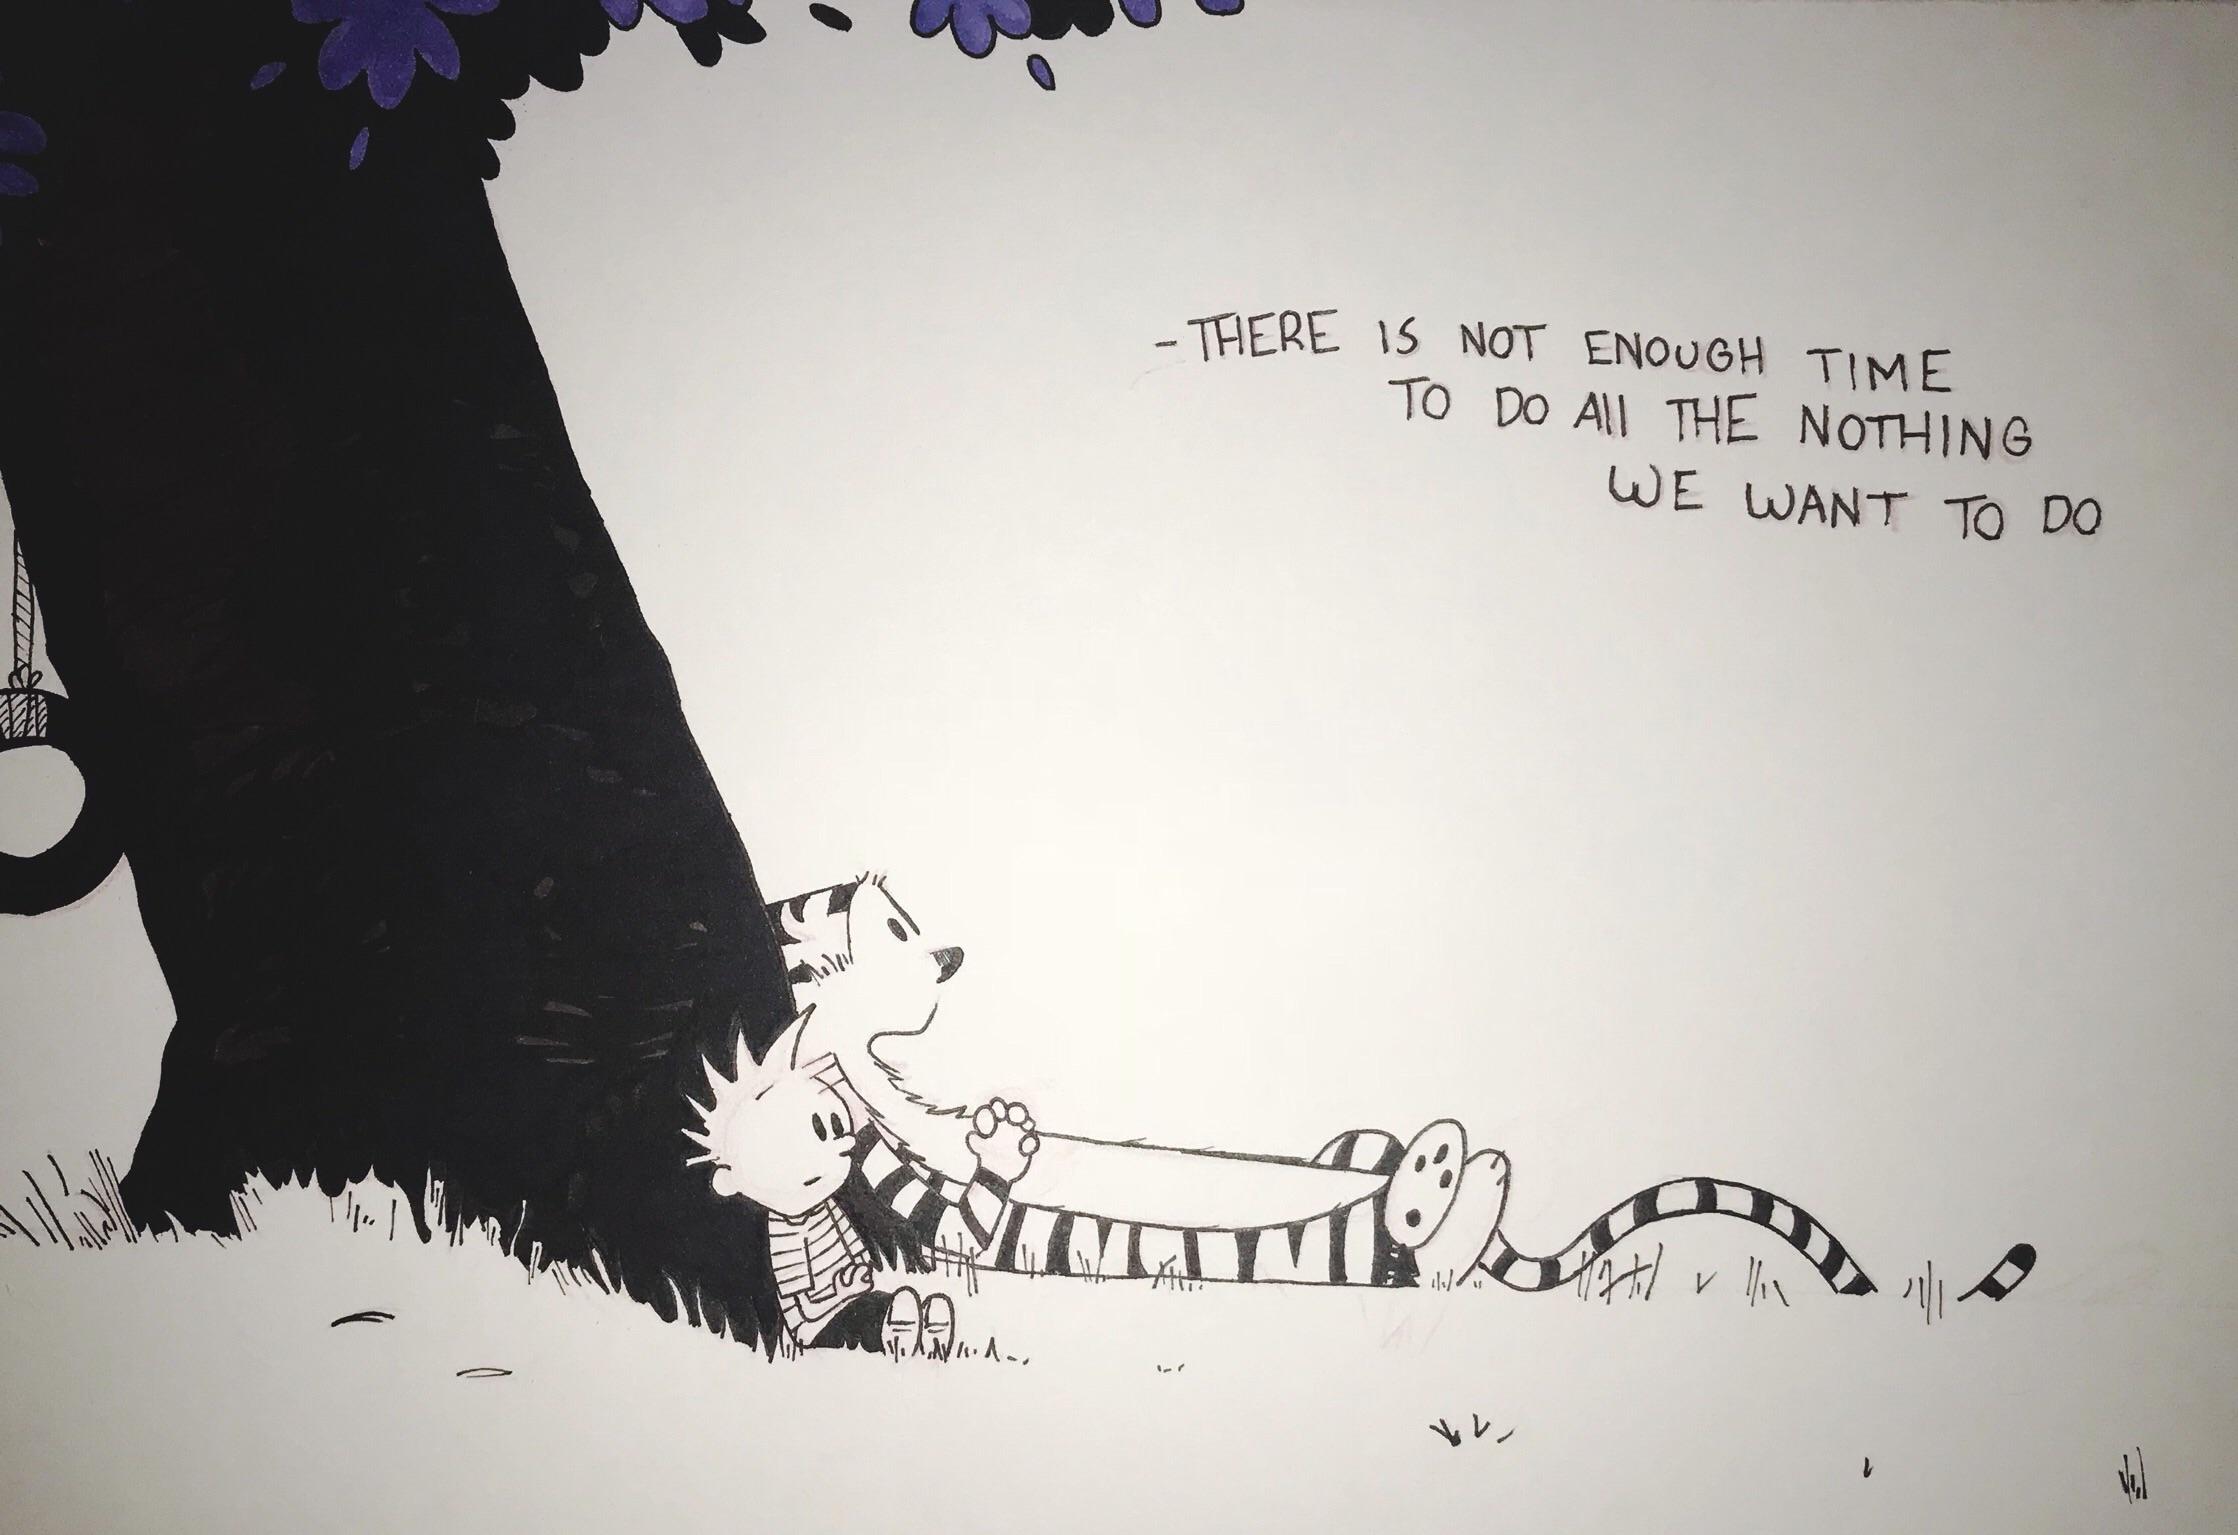 -THERE IS NOT ENOUGH TIME
TO DO All THE NOTHING
WE WANT TO DO